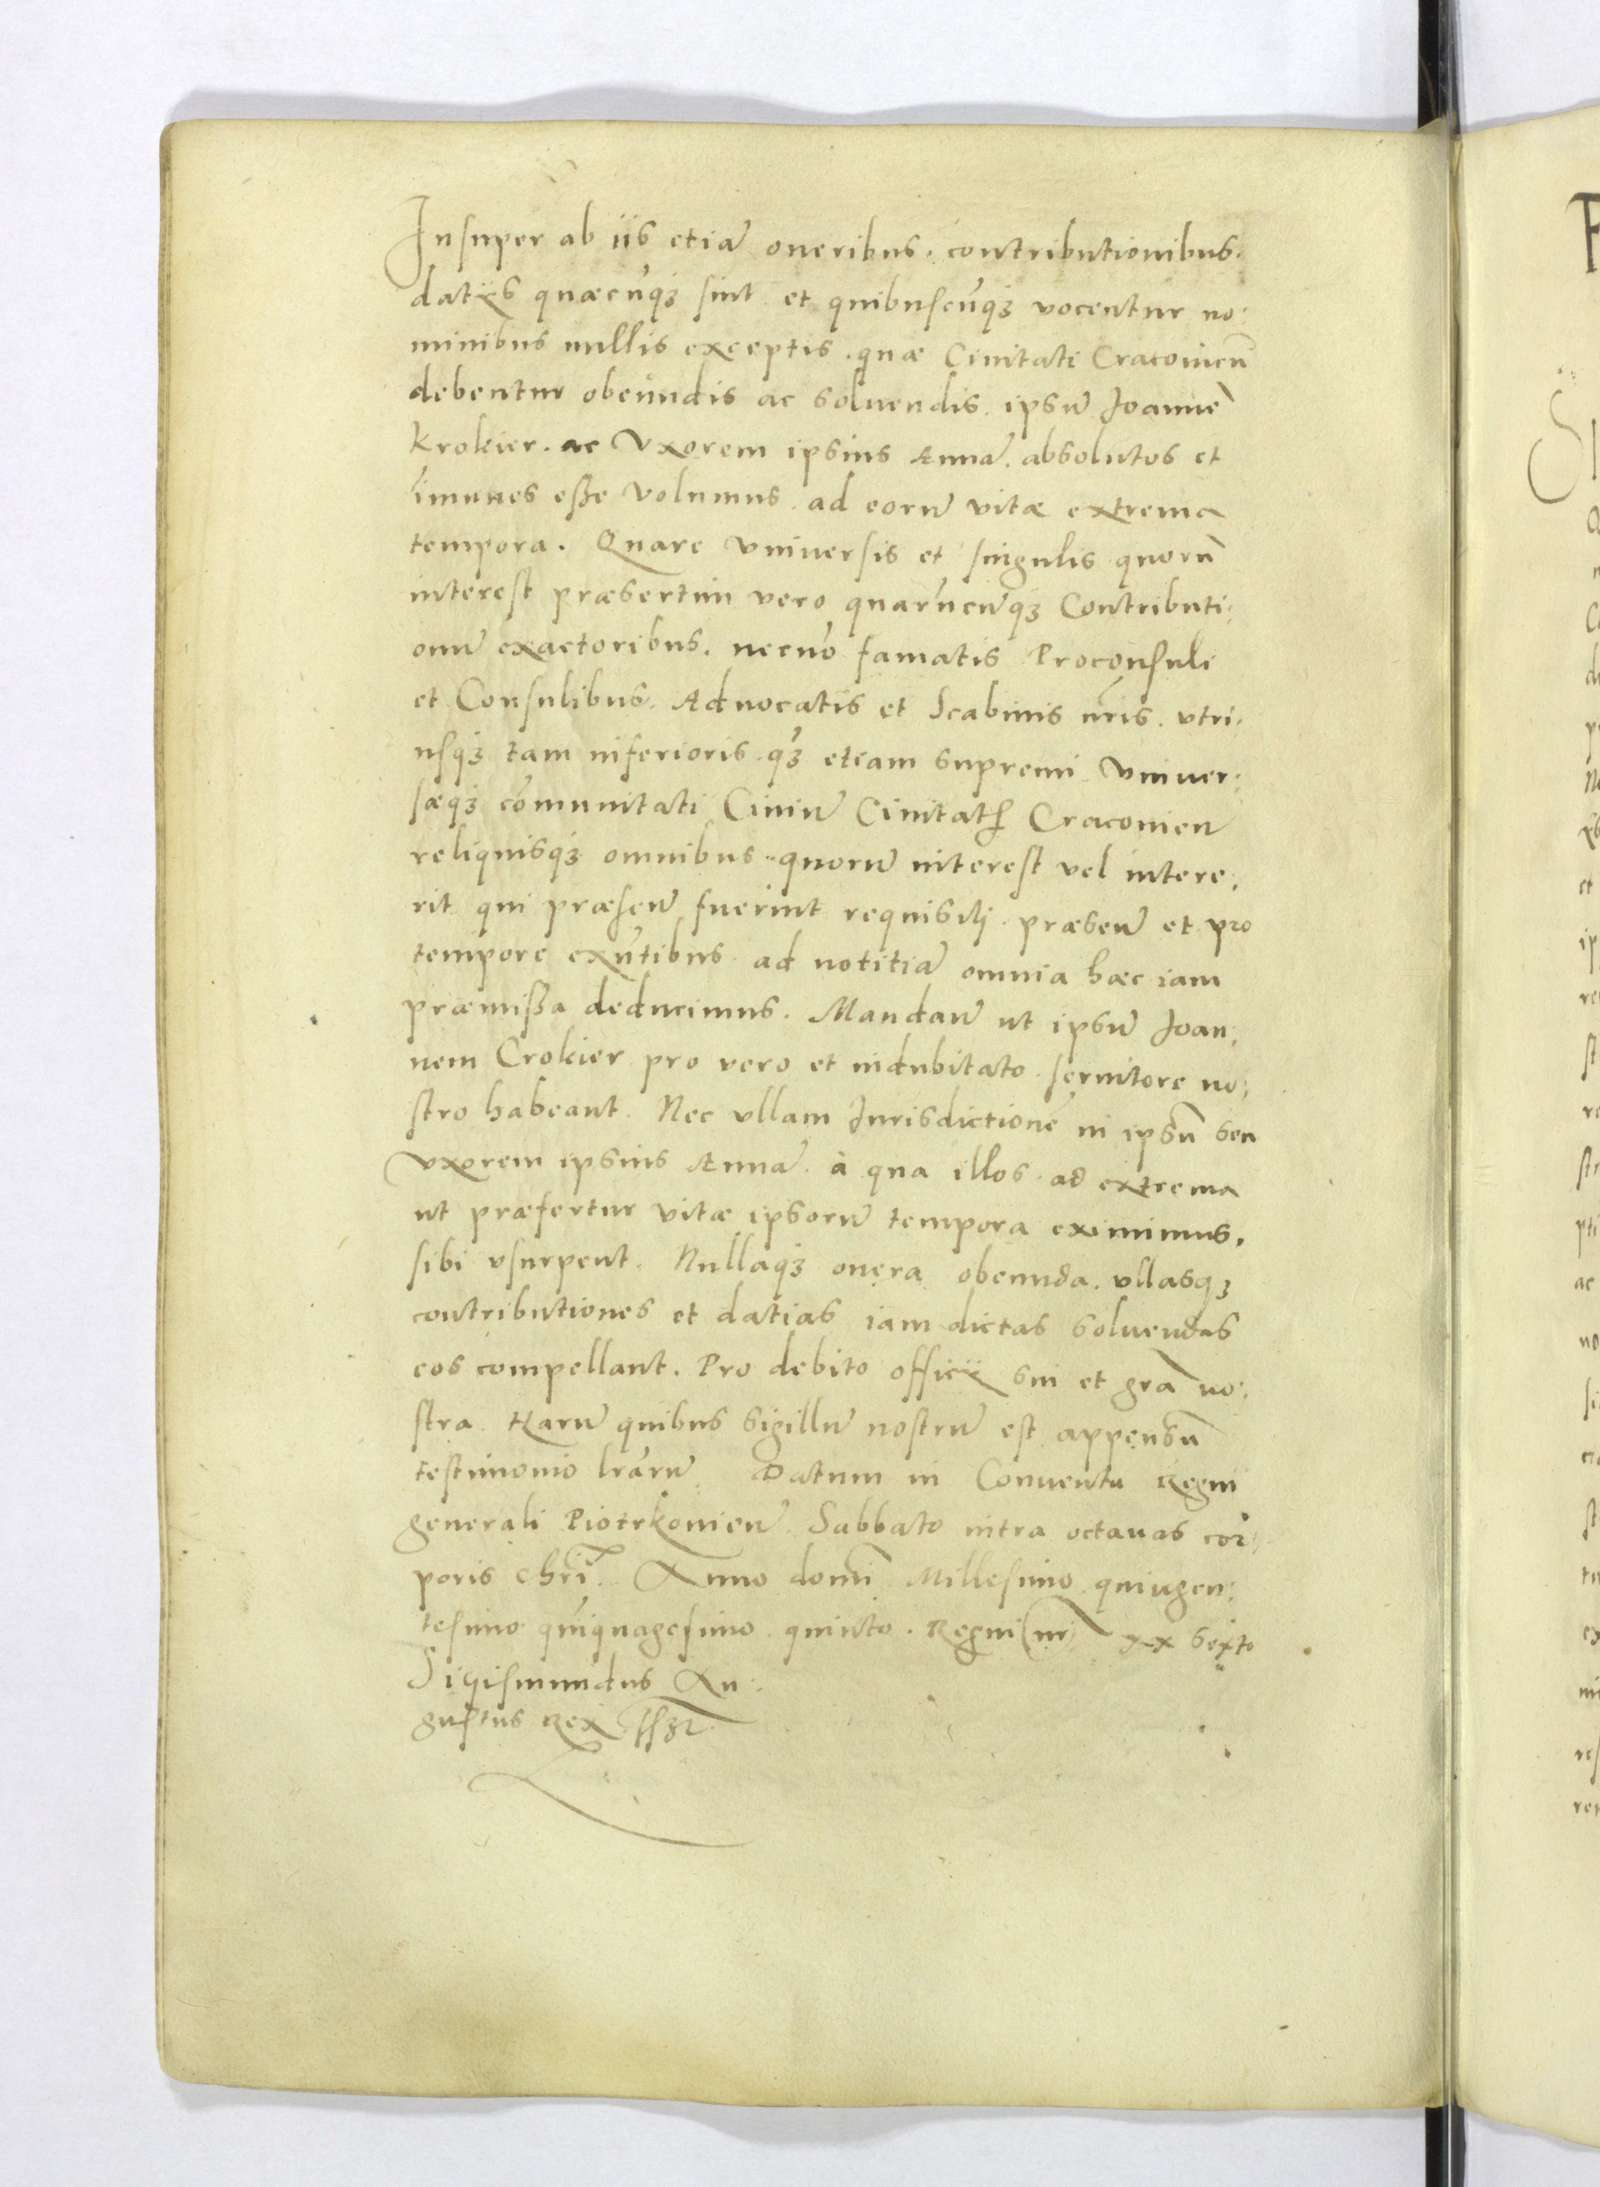 Insuper ab iis etiā oneribus. contributionibus.
datijs quæcūq3 sint et quibuscūq3 vocentur no:
minibus nullis exceptis. quæ Ciuitati Cracouieñ
debentur obeundis ac soluendis. ipsū Joannē
Krokier. ac Vxorem ipsius Annā. absolutos et
īmunes eße volumus. ad eorū vitæ extrema
tempora. Quare vniuersis et singulis quorū
interest præsertim vero quarūcūq3 Contributi:
onū exactoribus. necnō famatis Proconsuli
et Consulibus. Aduocatis et Scabinis nr̄is. vtri:
usq3 tam inferioris q3 etiam supremi vniuer:
sæq3 cōmunitati Ciuiū Ciuitatis Cracouieñ
reliquisq3 omnibus quorū interest vel intere:
rit qui præseñ fuerint requisitj. præseñ et pro
tempore exn̄tibus ad notitiā omnia hæc iam
præmißa deducimus. Mandañ ut ipsū Joan:
nem Crokier pro vero et indubitato seruitore no:
stro habeant. Nec vllam Jurisdictionē in ipsū seu
vxorem ipsius Annā. à qua illos ad extrema
ut præfertur vitæ ipsorū tempora eximimus.
sibi vsurpent. Nullaq3 onera obeunda. vllasq3
contributiones et datias iam dictas soluendas
eos compellant. Pro debito officij sui et gr̄a no:
stra. Harū quibus sigillū nostrū est appensū
testimonio lr̄arū. Datum in Conuentu Regni
generali Piotrkouieñ. Sabbato intra octauas cor:
poris Chr̄i. Anno domi Millesimo quingen:
tesimo quinquagesimo quinto. Regni nr̄i xx sexto
Sigismundus Au:
gustus Rex sszt.